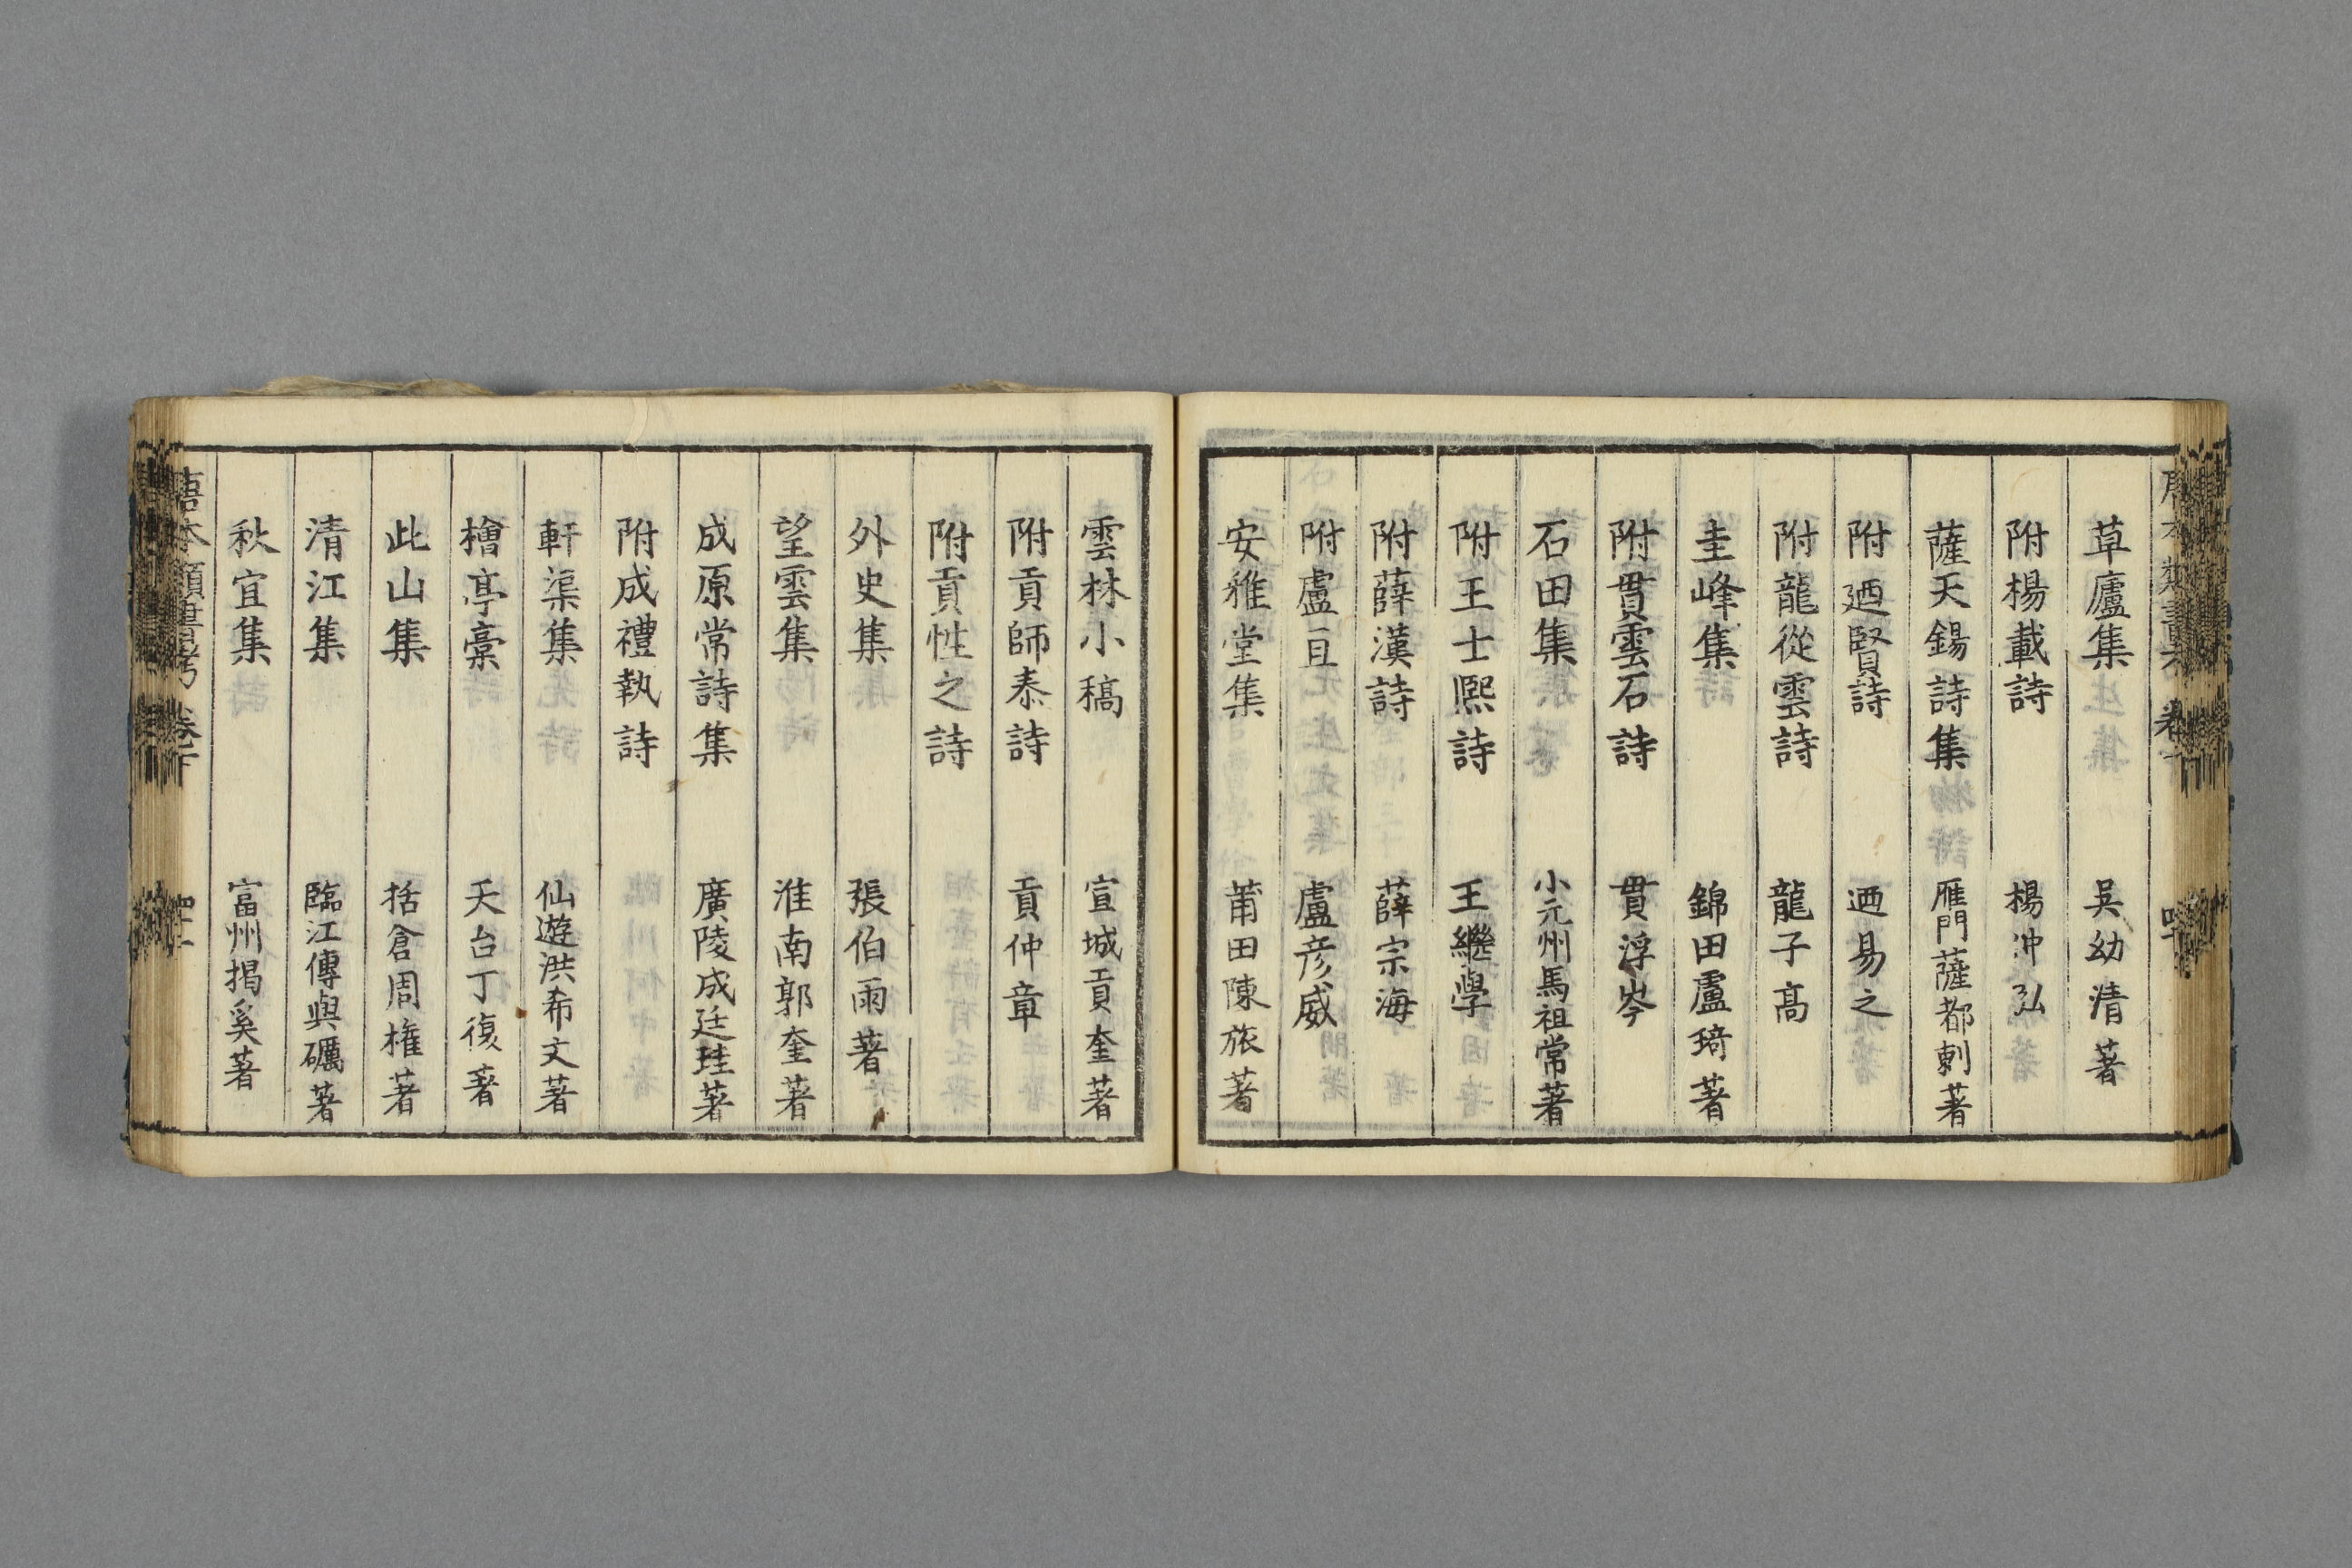 草廬集　吳幼清著
附楊載詩　楊冲弘
薩天錫詩集　雁門薩都剌著
附廼賢詩　迺易之
附龍從雲詩　龍子高
圭峰集　錦田盧琦著
附貫雲石詩　貫浮岑
石田集　小元州馬祖常著
附王士熙詩　王繼學
附薛漢詩　薛宗海
附盧亘　盧彦威
安雅堂集　莆田陳旅著
雲林小稿　宣城貢奎著
附貢師泰詩　貢仲章
附貢性之詩
外史集　張伯雨著
望雲集　淮南郭奎著
成原常詩集　廣陵成廷珪著
附成禮執詩
軒渠集　仙遊洪希文著
檜亭稾　天台丁復著
此山集　括倉周權著
清江集　臨江傅與礪著
秋宜集　富州揭奚著